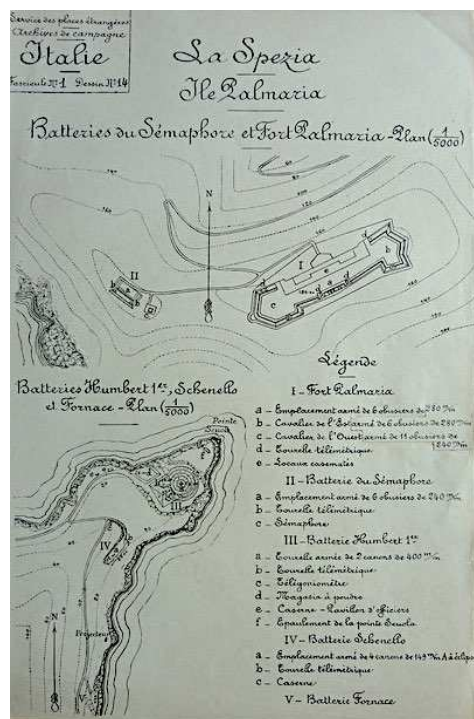 Service des places étrangères
Archives de campagne
Italie
Fascicule N°1 Dessin N°14
La Spezia
Ile Palmaria
Batteries du Sémaphore et Fort Palmaria - Plan (1/5000)
N
II
I
Batteries Humbert 1er, Schenello
et Fornace - Plan (1/5000)
Pointe
Scuola
III
IV
Projecteur
N
V
Légende
I - Fort Palmaria
a - Emplacement armé de 6 obusiers de 280 m/m
b - Cavalier de l'Est armé de 6 obusiers de 280 m/m
c - Cavalier de l'Ouest armé de 11 obusiers de 240 m/m
d - Tourelle télémétrique
e - Locaux casematés
II - Batterie du Sémaphore
a - Emplacement armé de 6 obusiers de 240 m/m
b - Tourelle télémétrique
c - Sémaphore
III - Batterie Humbert 1er
a - Tourelle armée de 2 canons de 400 m/m
b - Tourelle télémétrique
c - Télégoniomètre
d - Magasin à poudre
e - Caserne - Pavillon d'officiers
f - Epaulement de la pointe Scuola
IV - Batterie Schenello
a - Emplacement armé de 4 canons de 149 m/m A à éclipse
b - Tourelle télémétrique
c - Caserne
V - Batterie Fornace